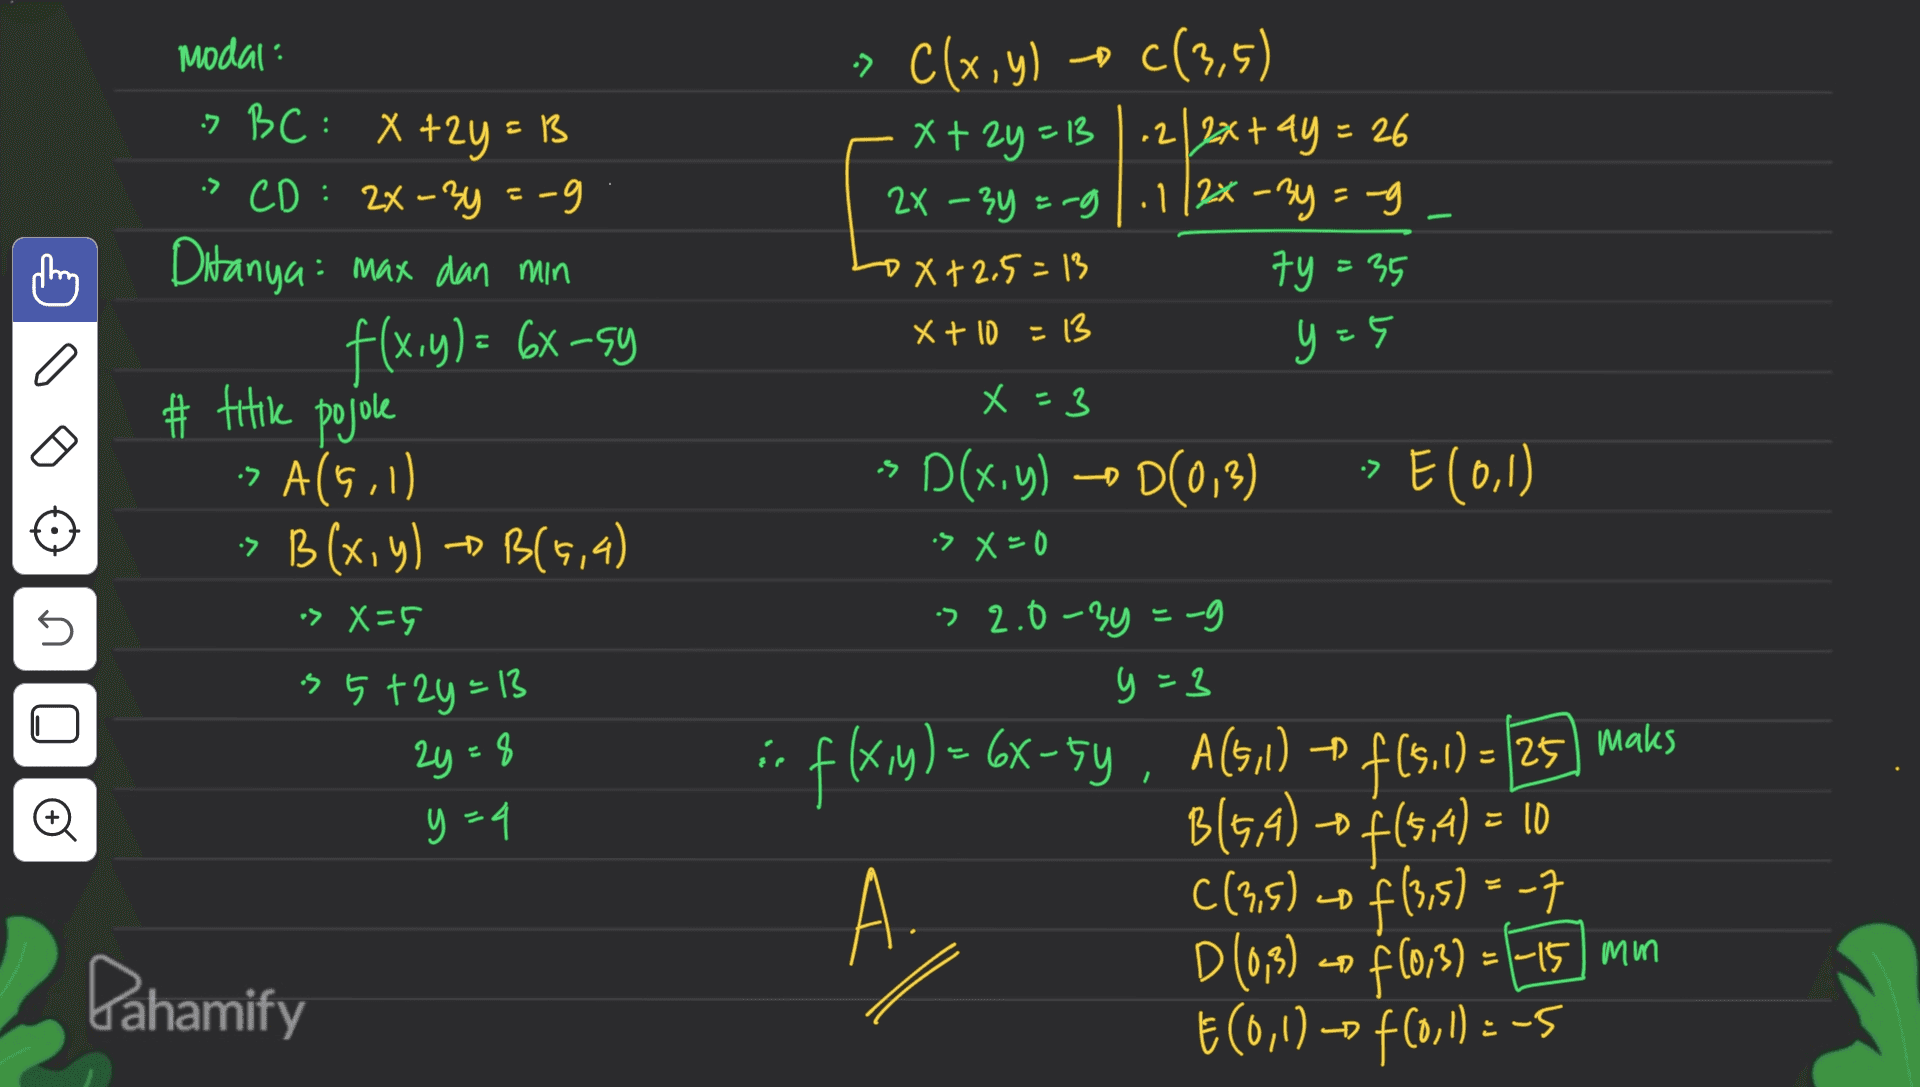 modal:
•> BC: x + 2y = 13
•> CD: 2x - 3y = -9
Ditanya: max dan min
f(x,y) = 6x - 5y
# titik pojok
•> A(5,1)
•> B(x,y) → B(5,4)
•> x = 5
•> 5 + 2y = 13
2y = 8
y = 4
•> C(x,y) → C(3,5)
x + 2y = 13 | .2 | 2x + 4y = 26
2x - 3y = -9 | .1 | 2x - 3y = -9 -
→ x + 2.5 = 13 7y = 35
x + 10 = 13 y = 5
x = 3
•> D(x,y) → D(0,3) •> E(0,1)
•> x = 0
•> 2.0 - 3y = -9
y = 3
∴ f(x,y) = 6x - 5y , A(5,1) → f(5,1) = 25 maks
B(5,4) → f(5,4) = 10
C(3,5) → f(3,5) = -7
D(0,3) → f(0,3) = -15 min
E(0,1) → f(0,1) = -5
A.
Pahamify